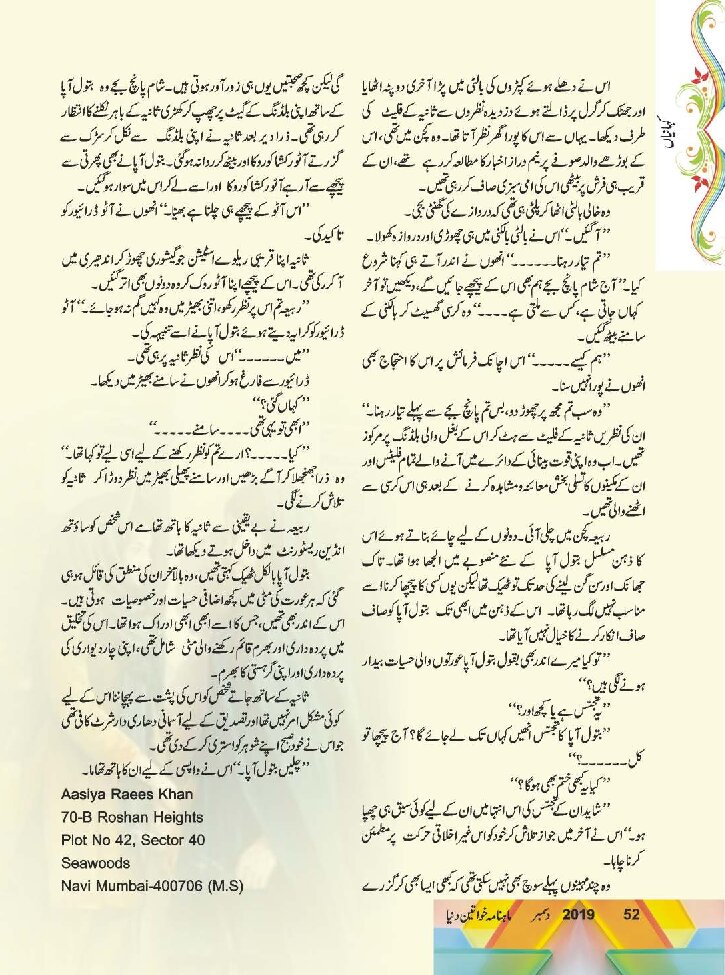 اس نے دھلے ہوئے کپڑوں کی بالٹی میں پڑا آخری دوپٹہ اٹھایا
اور جھٹک کر گرل پر ڈالتے ہوئے دزدیدہ نظروں سے ثانیہ کے فلیٹ کی
طرف دیکھا۔ یہاں سے اس کا پورا گھر نظر آتا تھا۔ وہ کچن میں تھی، اس
کے بوڑھے والد صوفے پر نیم دراز اخبار کا مطالعہ کر رہے تھے، ان کے
قریب ہی فرش پر بیٹھی اس کی امی سبزی صاف کر رہی تھیں۔
وہ خالی بالٹی اٹھا کر پلٹی ہی تھی کہ دروازے کی گھنٹی بجی۔
’’آ گئیں۔‘‘ اس نے بالٹی بالکنی میں ہی چھوڑی اور دروازہ کھولا۔
’’تم تیار رہنا۔۔۔۔۔۔‘‘ انھوں نے اندر آتے ہی کہنا شروع
کیا۔ ’’آج شام پانچ بجے ہم بھی اس کے پیچھے جائیں گے، دیکھیں تو آخر
کہاں جاتی ہے، کس سے ملتی ہے۔۔۔۔‘‘ وہ کرسی گھسیٹ کر بالکنی کے
سامنے بیٹھ گئیں۔
’’ہم کیسے۔۔۔۔۔‘‘ اس اچانک فرمائش پر اس کا احتجاج بھی
انھوں نے پورا نہیں سنا۔
’’وہ سب تم مجھ پر چھوڑ دو، بس تم پانچ بجے سے پہلے تیار رہنا۔‘‘
ان کی نظریں ثانیہ کے فلیٹ سے ہٹ کر اس کے بغل والی بلڈنگ پر مرکوز
تھیں۔ اب وہ اپنی قوت بینائی کے دائرے میں آنے والے تمام فلیٹس اور
ان کے مکینوں کا تسلی بخش معائنہ و مشاہدہ کرنے کے بعد ہی اس کرسی سے
اٹھنے والی تھیں۔
ربیعہ کچن میں چلی آئی۔ دونوں کے لیے چائے بناتے ہوئے اس
کا ذہن مسلسل بتول آپا کے نئے منصوبے میں الجھا ہوا تھا۔ تاک
جھانک اور سن گن لینے کی حد تک تو ٹھیک تھا لیکن یوں کسی کا پیچھا کرنا اسے
مناسب نہیں لگ رہا تھا۔ اس کے ذہن میں ابھی تک بتول آپا کو صاف
صاف انکار کرنے کا خیال نہیں آیا تھا۔
’’تو کیا میرے اندر بھی بقول بتول آپا عورتوں والی حسیات بیدار
ہونے لگی ہیں؟‘‘
’’یہ تجسس ہے یا کچھ اور؟‘‘
’’بتول آپا کا تجسس انھیں کہاں تک لے جائے گا؟ آج پیچھا تو
کل۔۔۔۔۔۔؟‘‘
’’کیا یہ کبھی ختم بھی ہوگا؟‘‘
’’شاید ان کے تجسس کی اس انتہا میں ان کے لیے کوئی سبق ہی چھپا
ہو۔‘‘ اس نے آخر میں جواز تلاش کر خود کو اس غیر اخلاقی حرکت پر مطمئن
کرنا چاہا۔
وہ چند مہینوں پہلے سوچ بھی نہیں سکتی تھی کہ کبھی ایسا بھی کر گزرے
گی لیکن کچھ صحبتیں یوں ہی زور آور ہوتی ہیں۔ شام پانچ بجے وہ بتول آپا
کے ساتھ اپنی بلڈنگ کے گیٹ پر چھپ کر کھڑی ثانیہ کے باہر نکلنے کا انتظار
کر رہی تھی۔ ذرا دیر بعد ثانیہ نے اپنی بلڈنگ سے نکل کر سڑک سے
گزرتے آٹو رکشا کو روکا اور بیٹھ کر روانہ ہوگئی۔ بتول آپا نے بھی پھرتی سے
پیچھے سے آ رہے آٹو رکشا کو روکا اور اسے لے کر اس میں سوار ہوگئیں۔
’’اس آٹو کے پیچھے ہی چلنا ہے بھیّا۔‘‘ انھوں نے آٹو ڈرائیور کو
تاکید کی۔
ثانیہ اپنا قریبی ریلوے اسٹیشن جوگیشوری چھوڑ کر اندھیری میں
آ کر رکی تھی۔ اس کے پیچھے اپنا آٹو روک کر وہ دونوں بھی اتر گئیں۔
’’ربیعہ تم اس پر نظر رکھو، اتنی بھیڑ میں وہ کہیں گم نہ ہو جائے۔‘‘ آٹو
ڈرائیور کو کرایہ دیتے ہوئے بتول آپا نے اسے تنبیہہ کی۔
’’میں۔۔۔۔۔۔‘‘ اس کی نظر ثانیہ پر ہی تھی۔
ڈرائیور سے فارغ ہو کر انھوں نے سامنے بھیڑ میں دیکھا۔
’’کہاں گئی؟‘‘
’’ابھی تو یہی تھی۔۔۔۔ سامنے۔۔۔۔۔‘‘
’’کیا۔۔۔۔۔؟ ارے تم کو نظر رکھنے کے لیے اسی لیے تو کہا تھا۔‘‘
وہ ذرا جھنجھلا کر آگے بڑھیں اور سامنے پھیلی بھیڑ میں نظر دوڑا کر ثانیہ کو
تلاش کرنے لگی۔
ربیعہ نے بے یقینی سے ثانیہ کا ہاتھ تھامے اس شخص کو ساؤتھ
انڈین ریسٹورنٹ میں داخل ہوتے دیکھا تھا۔
بتول آپا بالکل ٹھیک کہتی تھیں، وہ بالآخر ان کی منطق کی قائل ہو ہی
گئی کہ ہر عورت کی مٹی میں کچھ اضافی حسیات اور خصوصیات ہوتی ہیں۔
اس کے اندر بھی تھیں، جس کا اسے ابھی ابھی ادراک ہوا تھا۔ اس کی تخلیق
میں پردہ داری اور بھرم قائم رکھنے والی مٹی شامل تھی، اپنی چار دیواری کی
پردہ داری اور اپنی گرہستی کا بھرم۔
ثانیہ کے ساتھ جاتے شخص کو اس کی پشت سے پہچاننا اس کے لیے
کوئی مشکل امر نہیں تھا اور تصدیق کے لیے آسمانی دھاری دار شرٹ کافی تھی
جو اس نے خود صبح اپنے شوہر کو استری کر کے دی تھی۔
’’چلیں بتول آپا۔‘‘ اس نے واپسی کے لیے ان کا ہاتھ تھاما۔
Aasiya Raees Khan
70-B Roshan Heights
Plot No 42, Sector 40
Seawoods
Navi Mumbai-400706 (M.S)
ماہنامہ خواتین دنیا دسمبر 2019 52